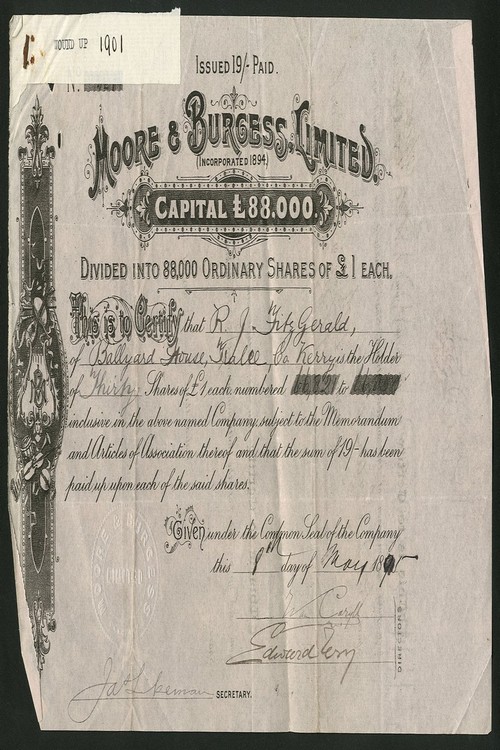 WOUND UP 1901
ISSUED 19/- PAID.
No.
MOORE & BURGESS, LIMITED.
(INCORPORATED 1894)
CAPITAL £88.000.
DIVIDED INTO 88,000 ORDINARY SHARES OF £1 EACH.
This is to Certify that R. J. FitzGerald,
of Ballyard House, Tralee, Co. Kerry is the Holder
of Thirty Shares of £1 each numbered to
inclusive in the above named Company subject to the Memorandum
and Articles of Association thereof and that the sum of 19/- has been
paid up upon each of the said shares.
Given under the Common Seal of the Company
this day of May 189
Edward Terry
DIRECTORS.
SECRETARY.
MOORE & BURGESS
LIMITED